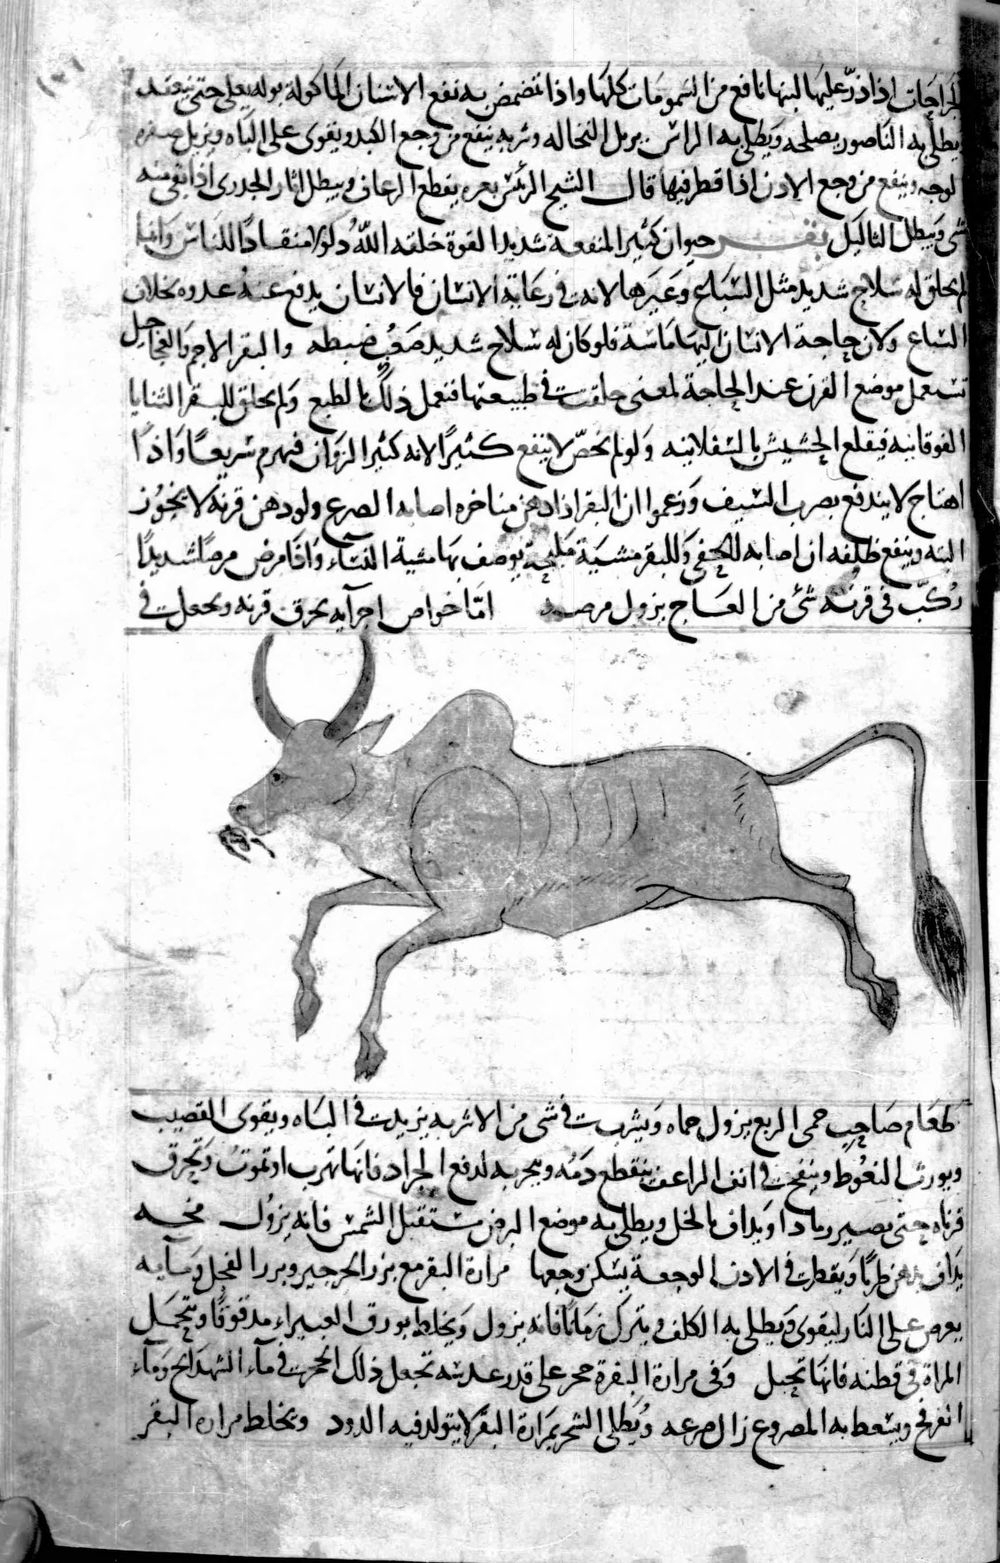 الجراحات اذا ذرّ عليها لبنها نافع من السمومات كلها واذا تمضمض به نفع الاسنان الماكولة بوله يغلى حتى ينعقد
ويطلى به الناصور يصلحه ويطلى به الراس يزيل النخاله وشربه ينفع من وجع الكبد ويقوى على الباه ويزيل صفره
الوجه وينفع من وجع الاذن اذا قطر فيها قال الشيخ الرئيس بعره يقطع الرعاف ويبطل اثار الجدرى
شى ويبطل الثاليل بقر حيوان كثير المنفعة شديد القوة خلقه الله ذلولا منقادا للناس وانما
لم يخلق له سلاح شديد مثل السباع وغيرها لانه فى رعاية الانسان فالانسان يدفع عنه عدوه بخلاف
السباع ولان حاجة الانسان اليها ماسة فلو كان له سلاح شديد صعب ضبطه والبقر الاجم والعجاجيل
تستعمل موضع القرن عند الحاجة لمعنى خلقت فى طبيعتها فتفعل ذلك بالطبع ولم يخلق للبقر الثنايا
الفوقانية فيقلع الحشيش بالسفلانيه ولو لم يخصّ لا ينفع كثيرا لانه كثير النزوان فيهرم سريعا واذا
اهتاج لا يندفع بضرب السيف وزعموا ان البقر اذا دهن مناخره اصابه الصرع ولو دهن قرنه لا يخور
البته وينفع ظلفه ان اصابه الحفى وللبقر مشية مليحة يوصف بها مشية النساء واذا مرض مرضا شديدا
ركّب فى قرنه شئ من العاج يزول مرضه امّا خواص اجزآيه يحرق قرنه ويجعل فى
طعام صاحب حمى الربع يزول حماه ويشرب فى شى من الاشربه يزيد فى الباه ويقوى القضيب
ويورث النعوظ وينفخ فى انف الراعف ينقطع دمه ويبخر به لدفع الجراد فانها تهرب او تموت وتحرق
قرناه حتى يصير رمادا ويداف بالخل ويطلى به موضع البرص مستقبل الشمس فانه يزول مخه
يداف بدهن ويقطر فى الاذن الوجعة يسكن وجعها مرارة البقر مع بزر الجرجير وبزر الفجل ومآيه
على النار ليقوى ويطلى به الكلف ويترك زمانا فانه يزول ويخلط بورق الغبيراء مدقوقا ويتحمل
المراة فى قطنه فانها تحبل وفى مرارة البقرة حجر على قدر عدسة تجعل ذلك الحجر فى مآء الشهدانج ومآء
ويسعط به المصروع زال صرعه ويطلى الشجر بمرارة البقر لا يتولد فيه الدود وتخلط مراره البقر